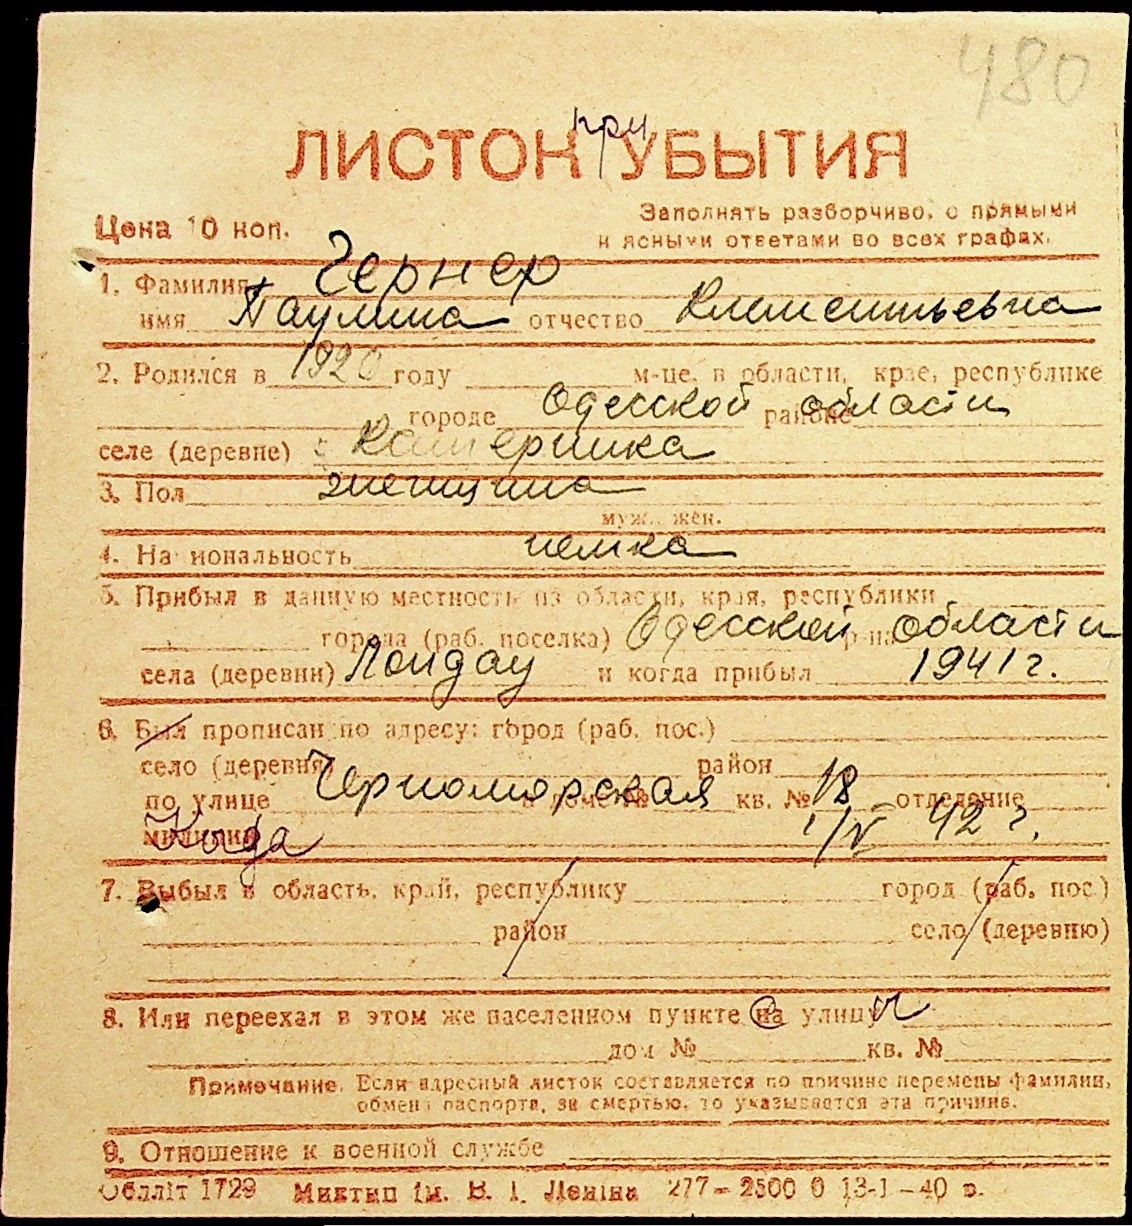 480
ЛИСТОК при УБЫТИЯ
Цена 10 коп.
Заполнять разборчиво, с прямыми
и ясными ответами во всех графах.
1. Фамилия Гернер
имя Паулина отчество Климентьевна
2. Родился в 1920 году м-це, в области, крае, республике
городе Одесской районе области
селе (деревне) Катеринка
3. Пол женщина
муж., жен.
4. Национальность немка
5. Прибыл в данную местность из области, края, республики
города (раб. поселка) Одесской р-на области
села (деревни) Ландау и когда прибыл 1941 г.
6. Был прописан по адресу: город (раб. пос.)
село (деревня) район
по улице Черноморская в доме № кв. № 18 отделение
милиции 1/V 42 г.
7. Выбыл в область, край, республику город (раб. пос.)
район село (деревню)
8. Или переехал в этом же населенном пункте на улицу
дом № кв. №
Примечание. Если адресный листок составляется по причине перемены фамилии,
обмена паспорта, за смертью, то указывается эта причина.
9. Отношение к военной службе
Облліт 1729 Миктип ім. В. І. Леніна 277–2500 0 13-I–40 р.